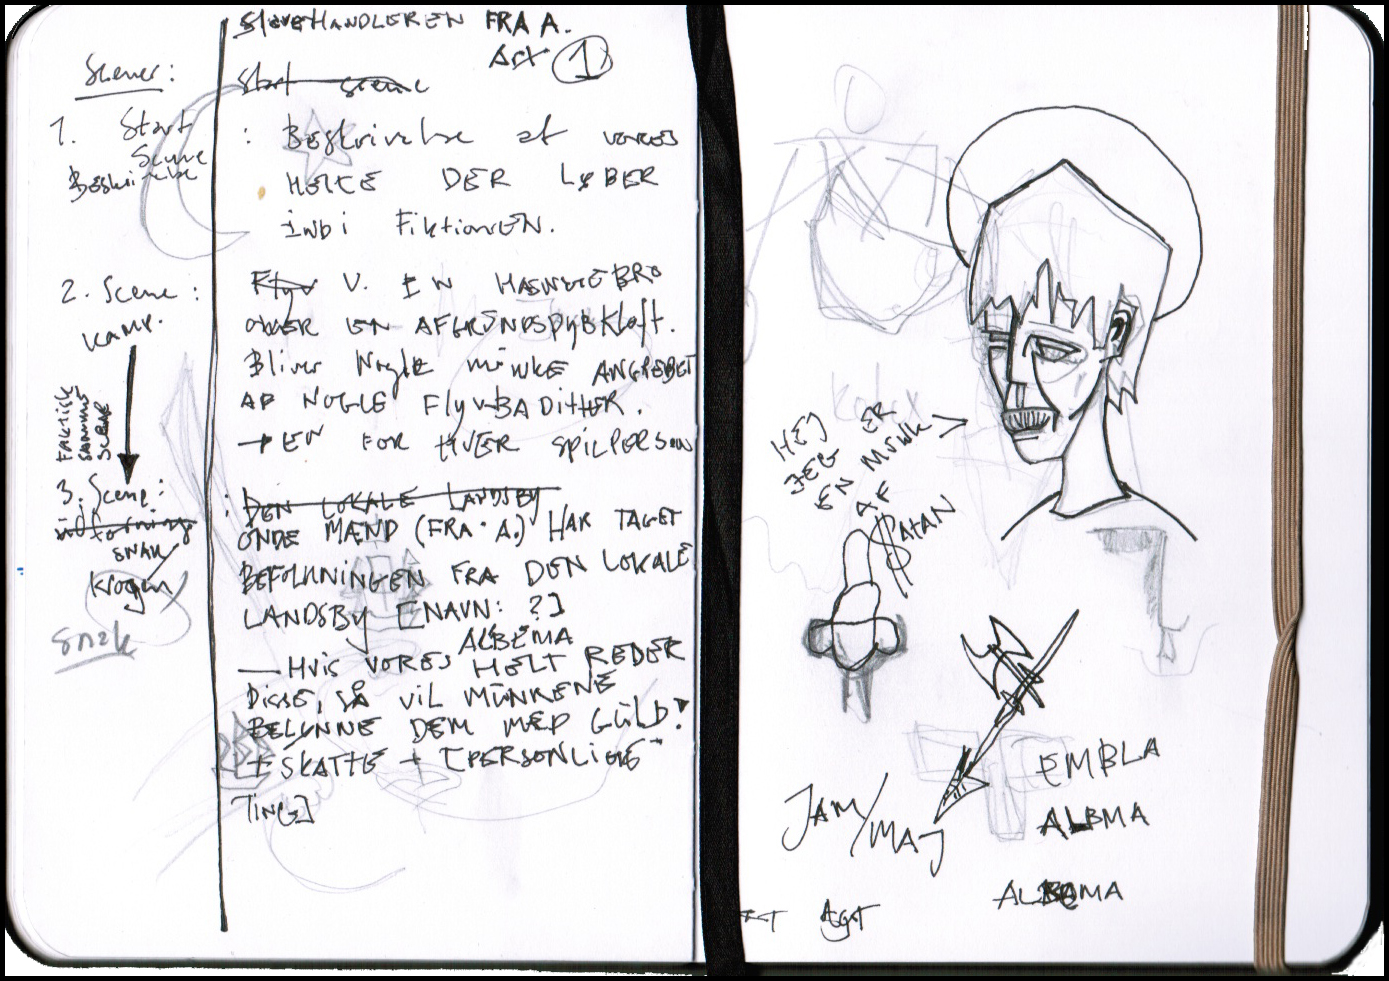 SlaveHANDLEREN FRA A.
Akt 1
Scener:
Start scene
1. Start
Scene
Beskrivelse
: Beskrivelse af vores
HELTE DER LØBER
ind i FiktionEN.
2. Scene:
Kamp.
Flyv V. EN HÆNGEBRO
over EN AFGRUNDSDYB Kløft.
Bliver Nogle munke ANGREBET
AF NOGLE Flyv-BANDITTER.
→ EN FOR HVER SPILPERSON
FAKTISK
SAMME
SCENE
3. Scene:
udforning
SNAK
Krogen
Snak
: DEN LOKALE LANDSBY
ONDE MÆND (FRA A.) HAR TAGET
BEFOLKNINGEN FRA DEN LOKALE
LANDSBY [NAVN: ?]
ALBEMA
— HVIS VORES HELT REDER
DISSE, SÅ VIL MUNKENE
BELØNNE DEM MED GULD!
+ SKATTE + [PERSONLIGE
TING]
HEJ
JEG ER
EN MUNK
AF
SATAN
JAM/
MAJ
EMBLA
ALBMA
ALBAMA